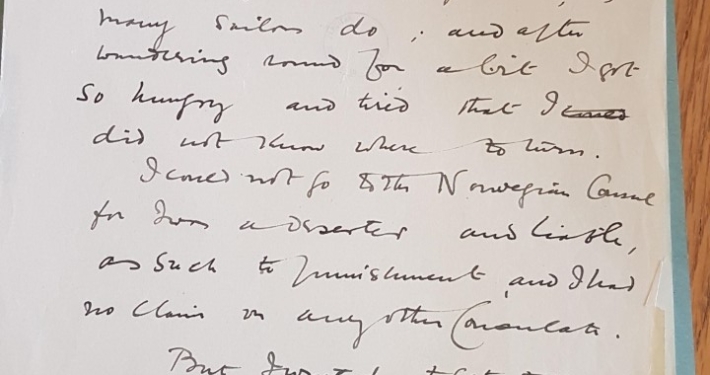 many sailors do ; and after
wandering round for a bit I got
so hungry and tired that I could
did not know where to turn.
I could not go to the Norwegian Consul
for I was a deserter and liable,
as such to punishment, and I had
no claim on any other Consulate.
But I